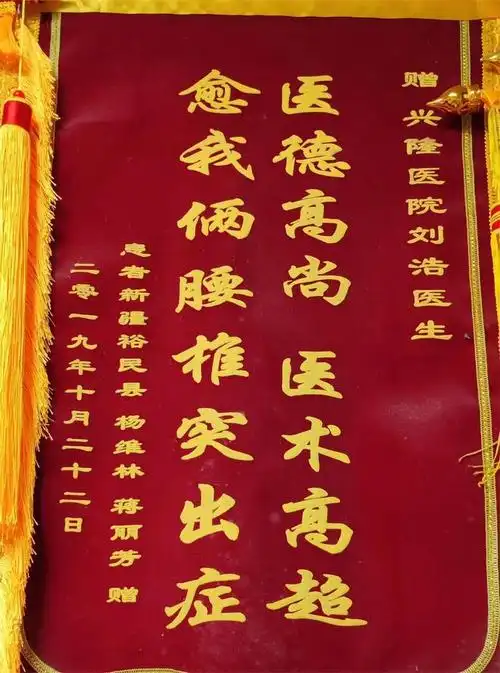 赠兴隆医院刘浩医生
医德高尚 医术高超
愈我俩腰椎突出症
患者新疆裕民县 杨维林 蒋丽芳 赠
二零一九年十月二十二日